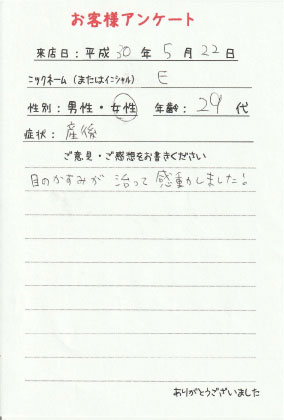 お客様アンケート
来店日：平成 30 年 5 月 22 日
ニックネーム（またはイニシャル） E
性別：男性・女性 年齢：29 代
症状：産後
ご意見・ご感想をお書きください
目のかすみが 治って 感動しました！
ありがとうございました